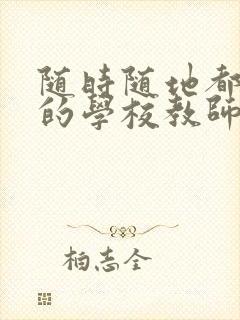 随時随地都
的學校教師
柏志全